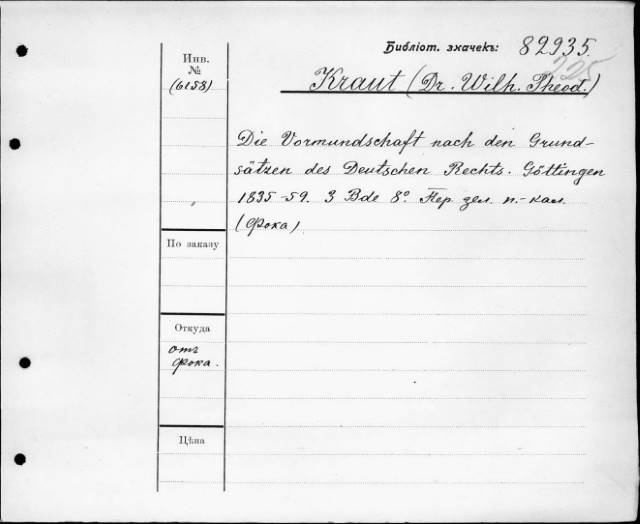 Библіот. значекъ: 82935.
225
Инв.
№
(6158)
Kraut (Dr. Wilh. Theod.)
Die Vormundschaft nach den Grund-
sätzen des Deutschen Rechts. Göttingen
1835-59. 3 Bde 8°. Пер. зел. п.-кал.
(Фока)
По заказу
Откуда
отъ
Фока.
Цѣна